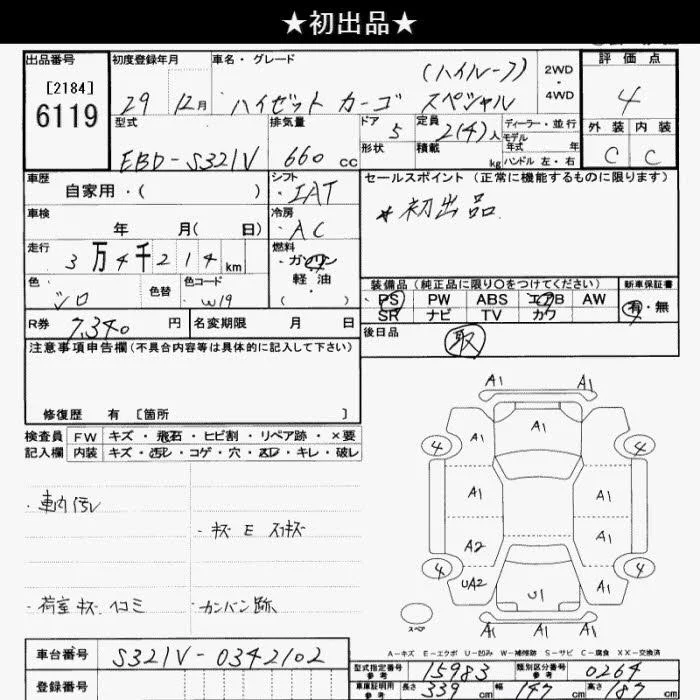 ★初出品★
出品番号 初度登録年月 車名・グレード 評価点
[2184] (ハイルーフ) 2WD
6119 29 12月 ハイゼット カーゴ スペシャル ・4WD 4
型式 排気量 ドア 5 定員 2(4)人 ディーラー・並行 外装 内装
EBD-S321V 660 cc 形状 積載 kg モデル年式 年 C C
ハンドル 左・右
車歴 シフト セールスポイント(正常に機能するものに限ります)
自家用・( ) ・IAT *初出品
車検 冷房
年 月( 日) ・AC
走行 燃料
3万4千214km ・ガソリン
軽油
・( )
色 色替 色コード 装備品(純正品に限り○をつけてください) 新車保証書
シロ W19 PS PW ABS エアB AW 有・無
R券 7,340円 名変期限 月 日 SR ナビ TV カワ
後日品 取
注意事項申告欄(不具合内容等は具体的に記入して下さい)
修復歴 有 [箇所 ]
検査員 FW キズ・飛石・ヒビ割・リペア跡・×要
記入欄 内装 キズ・汚レ・コゲ・穴・スレ・キレ・破レ
・車内汚レ
・キズ E スリキズ
・荷室キズ ヘコミ ・カンバン跡
A1 A1
A1 A1
4 4
A1 A1
A2 A1
4 4
UA2 U1 A1
スペア A1 A1 A1
A-キズ E-エクボ U-凹み W-補修跡 S-サビ C-腐食 XX-交換済
車台番号 S321V-0342102 型式指定番号 参考 15983 類別区分番号 参考 0264
登録番号 車庫証明用 参考 長さ 339 cm 幅 147 cm 高さ 187 cm